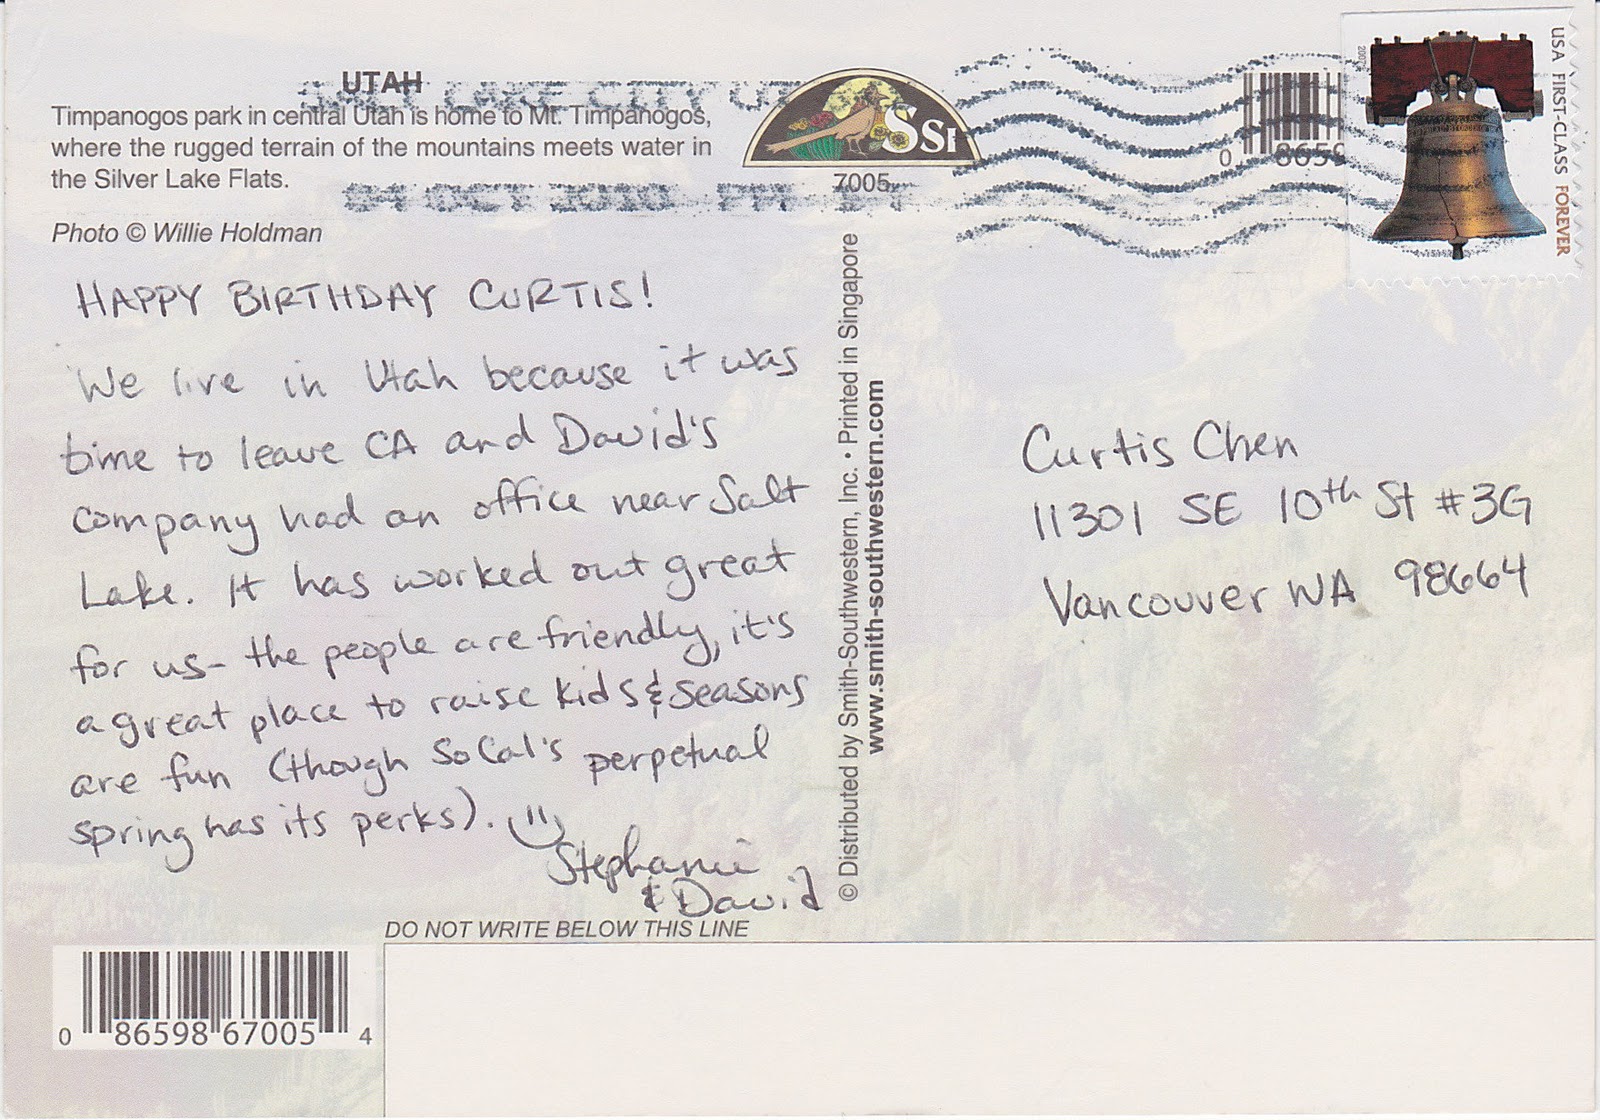 UTAH
Timpanogos park in central Utah is home to Mt. Timpanogos,
where the rugged terrain of the mountains meets water in
the Silver Lake Flats.
Photo © Willie Holdman
SALT LAKE CITY UT
04 OCT 2010 PM
SSI
7005
0 8659
2007
USA FIRST-CLASS FOREVER
HAPPY BIRTHDAY CURTIS!
We live in Utah because it was
time to leave CA and David's
company had an office near Salt
Lake. It has worked out great
for us- the people are friendly, it's
a great place to raise kids & seasons
are fun (though SoCal's perpetual
spring has its perks).
Stephanie
& David
© Distributed by Smith-Southwestern, Inc. • Printed in Singapore
www.smith-southwestern.com
Curtis Chen
11301 SE 10th St #3G
Vancouver WA 98664
DO NOT WRITE BELOW THIS LINE
0 86598 67005 4